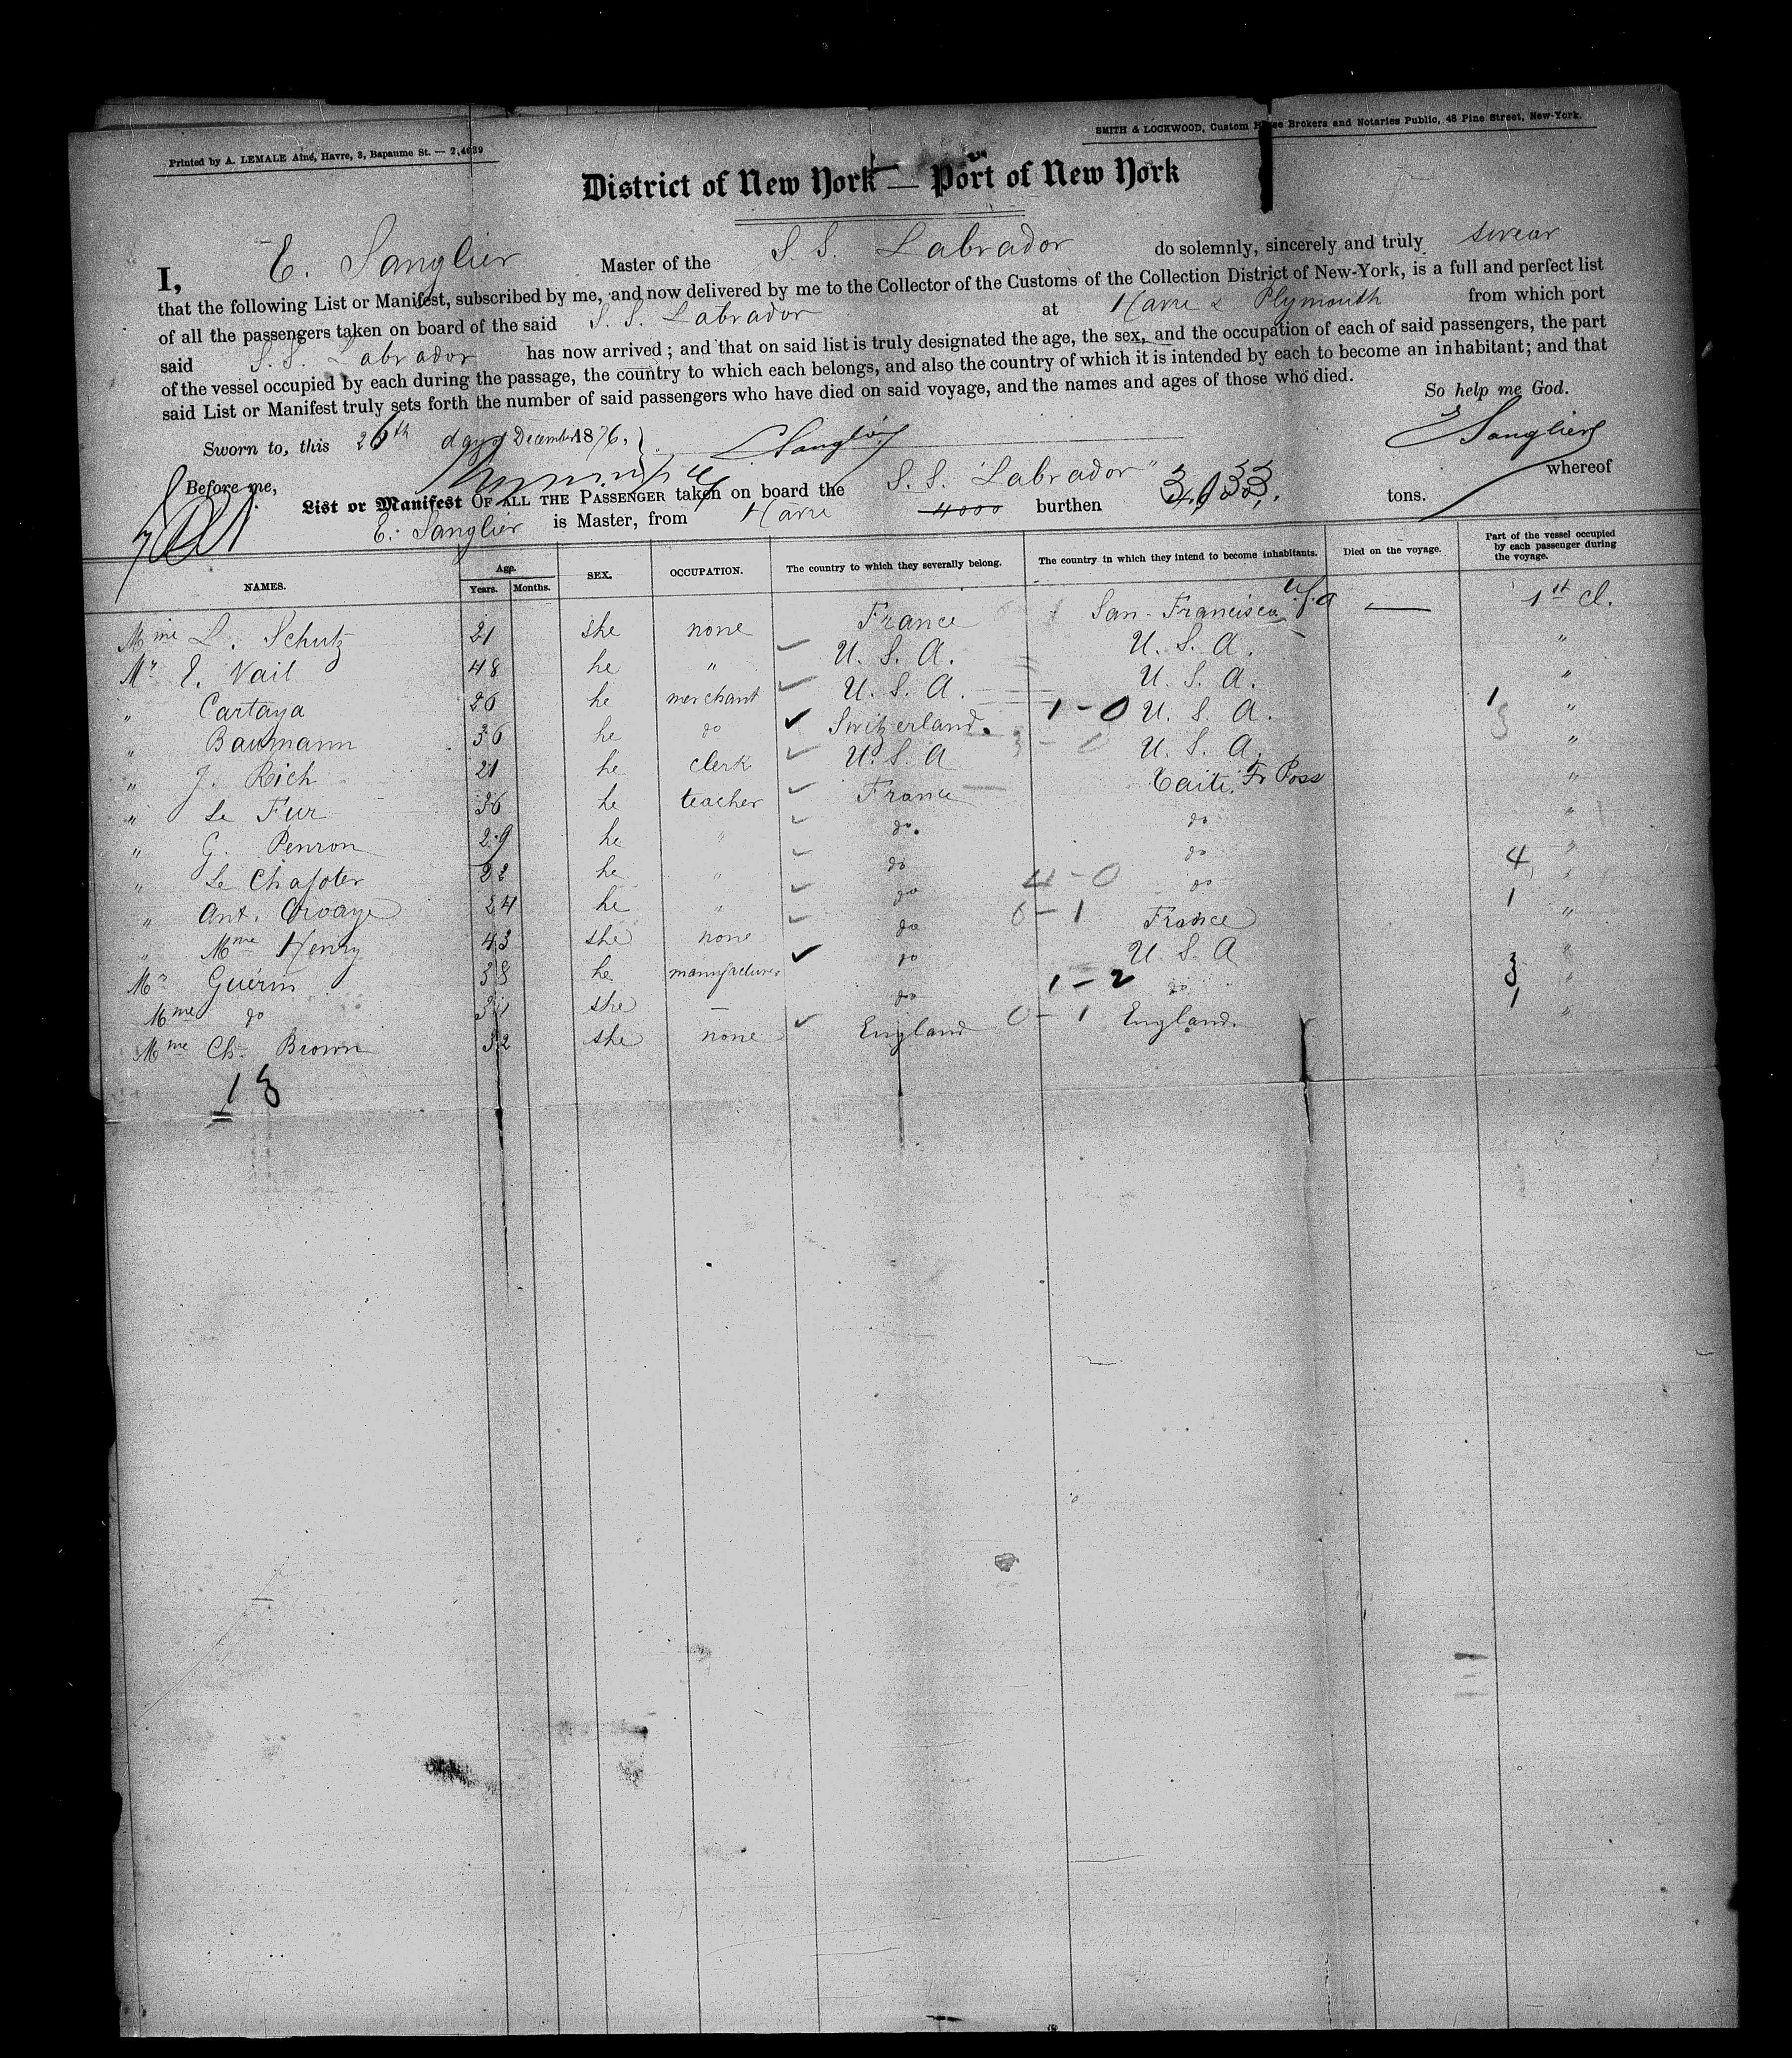 Printed by A. LEMALE Aîné, Havre, 3, Bapaume St. — 2,4639
SMITH & LOCKWOOD, Custom House Brokers and Notaries Public, 48 Pine Street, New-York.
District of New York — Port of New York
I, E. Sanglier Master of the S. S. Labrador do solemnly, sincerely and truly swear
that the following List or Manifest, subscribed by me, and now delivered by me to the Collector of the Customs of the Collection District of New-York, is a full and perfect list
of all the passengers taken on board of the said S. S. Labrador at Havre & Plymouth from which port
said S. S. Labrador has now arrived; and that on said list is truly designated the age, the sex, and the occupation of each of said passengers, the part
of the vessel occupied by each during the passage, the country to which each belongs, and also the country of which it is intended by each to become an inhabitant; and that
said List or Manifest truly sets forth the number of said passengers who have died on said voyage, and the names and ages of those who died.
So help me God.
Sworn to, this 26th day of December 1876. E Sanglier
E Sanglier
Before me,
List or Manifest OF ALL THE PASSENGER taken on board the S. S. "Labrador" whereof
E. Sanglier is Master, from Havre 4000 burthen 3,133. tons.
NAMES. Age. Years. Months. SEX. OCCUPATION. The country to which they severally belong. The country in which they intend to become inhabitants. Died on the voyage. Part of the vessel occupied by each passenger during the voyage.
Mme L. Schutz 21 she none France San-Francisco U.S.A — 1st Cl.
Mr E. Vail 48 he " U. S. A. U. S. A. "
" Cartaya 26 he merchant U. S. A. U. S. A. "
" Baumann 36 he do Switzerland. 1-0 U. S. A. 1 "
" J. Rich 21 he clerk U. S. A 3-0 U. S. A. 3 "
" Le Fur 36 he teacher France Taiti. Fr Poss "
" G. Penron 29 he " do. do "
" Le Chapoter 22 he " do do "
" Ant. 24 he " do 4-0 do 4 "
" Mme Henry 43 she none do 0-1 France 1 "
Mr Guérin 38 he manufacturer do U. S. A "
Mme do 31 she — do 1-2 do 3 "
Mme Ch. Brown 32 she none England 0-1 England. 1 "
13